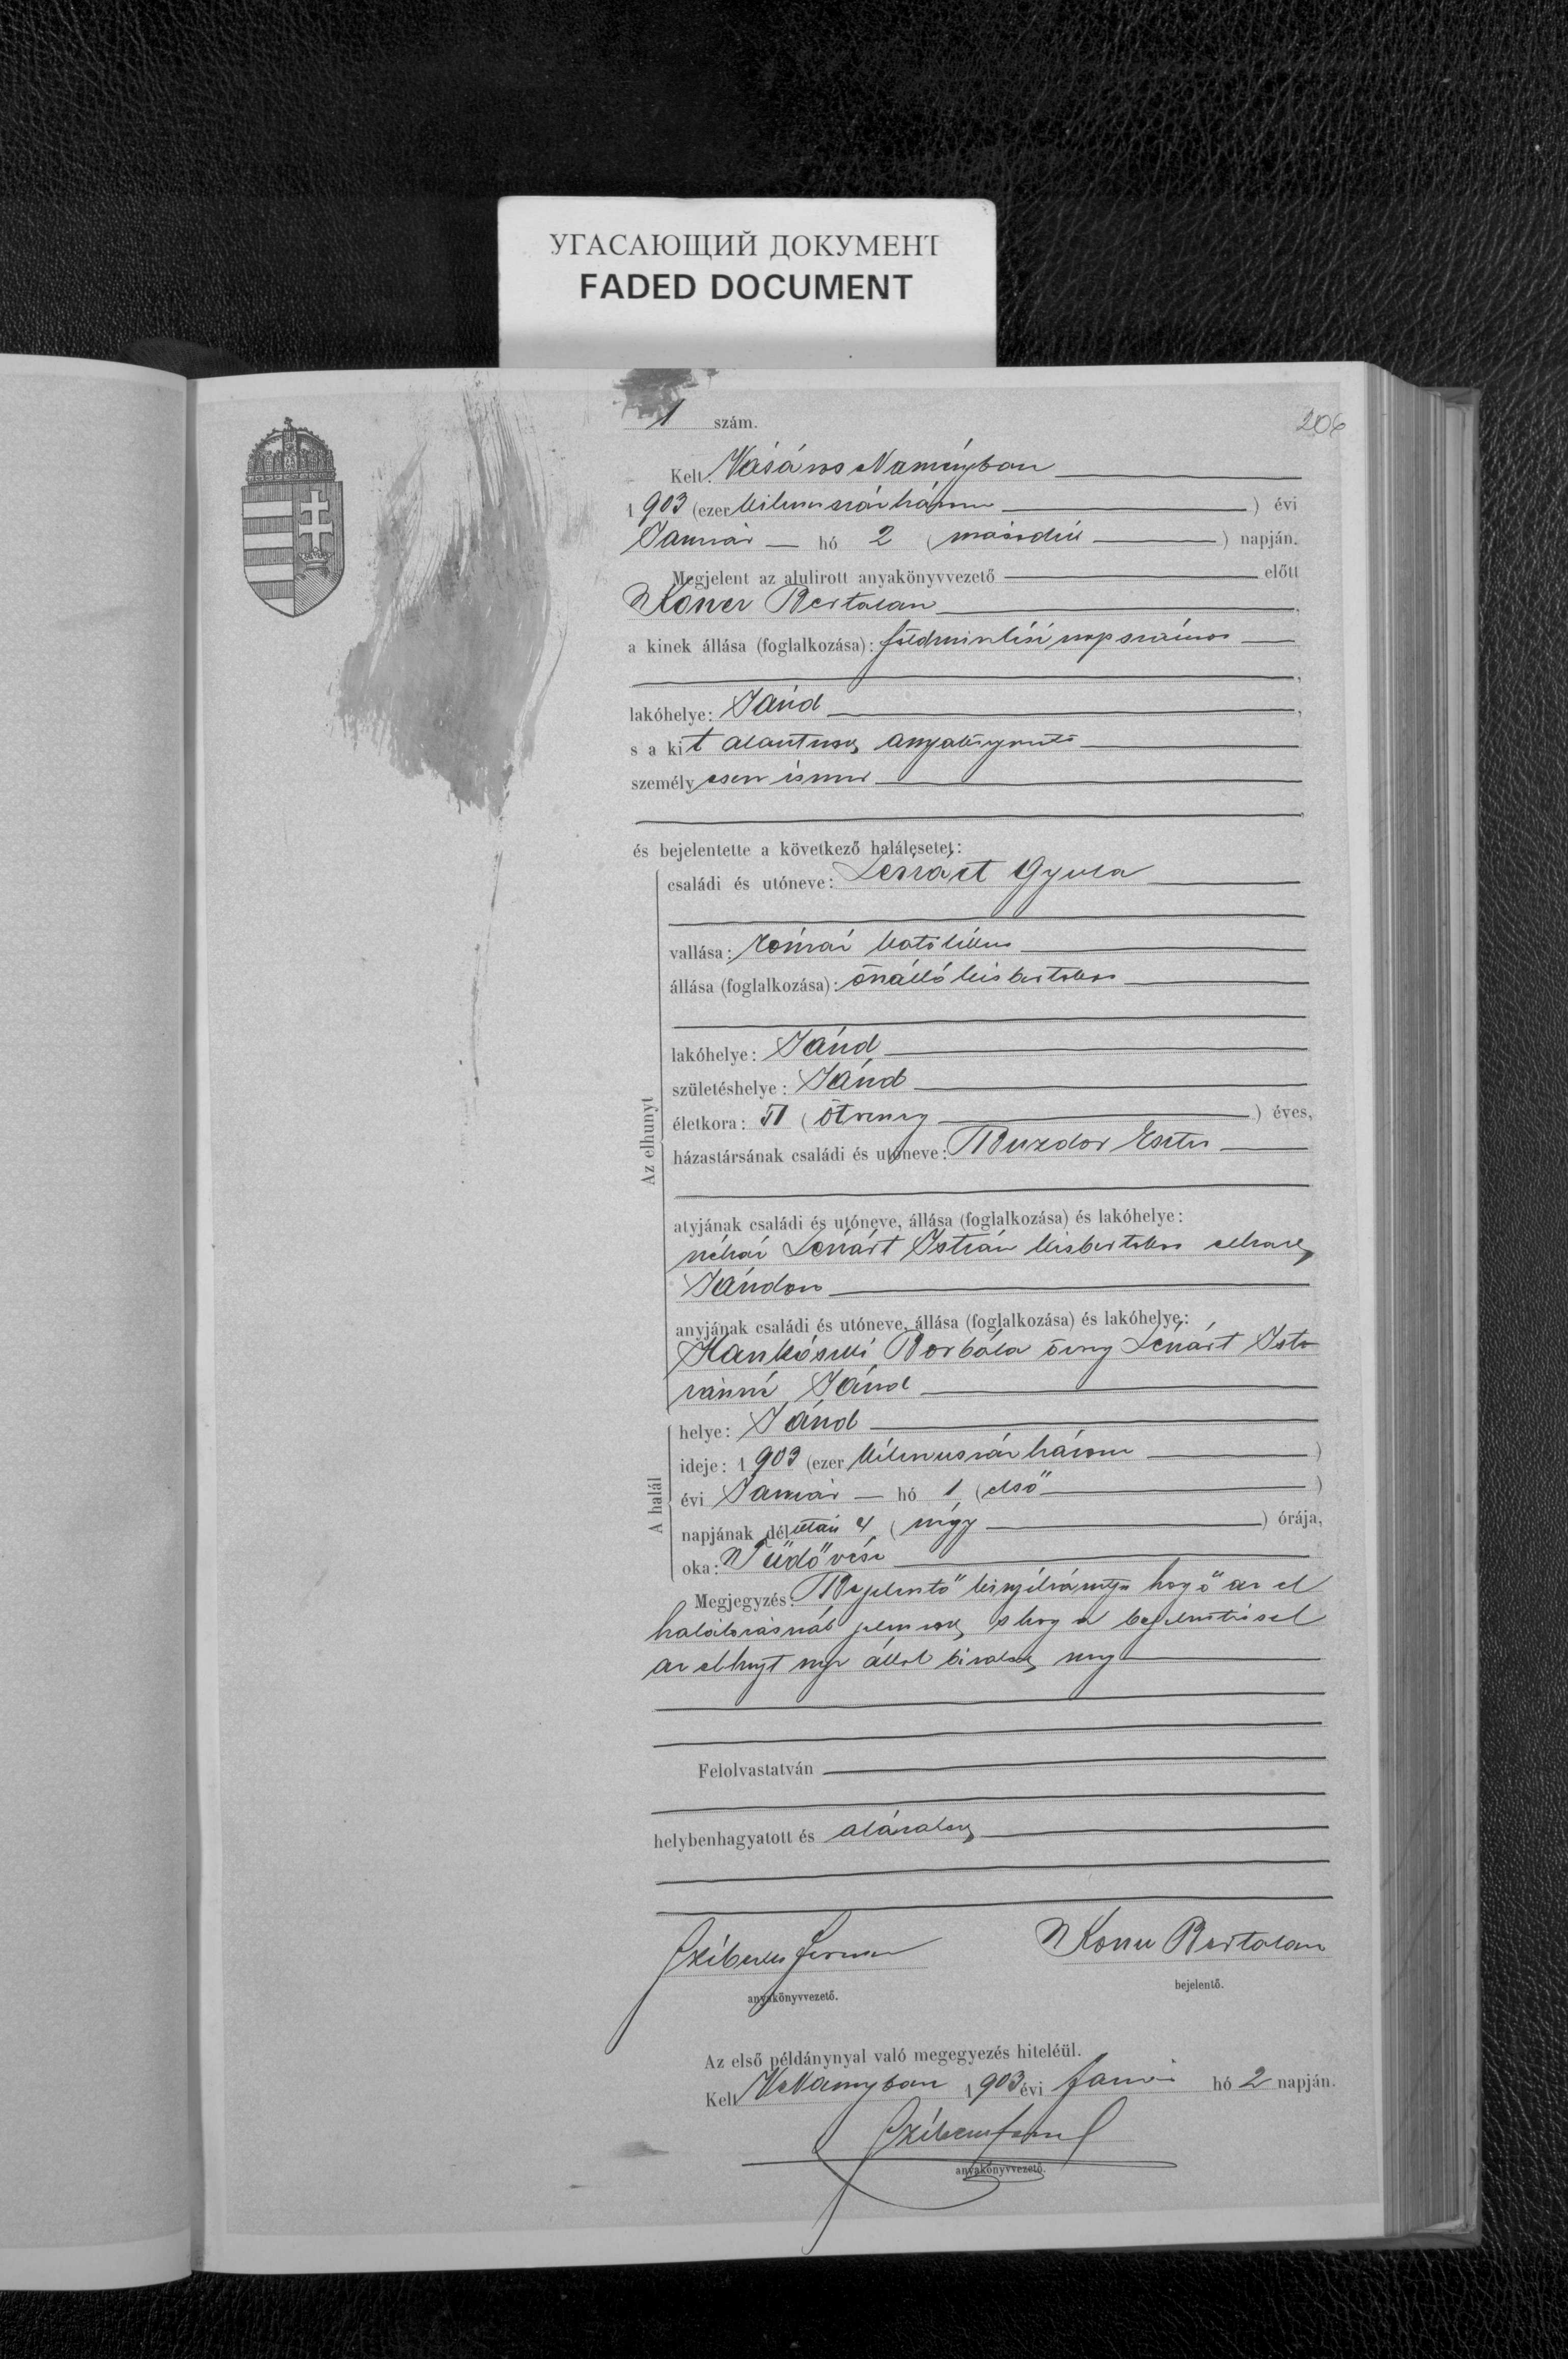 УГАСАЮЩИЙ ДОКУМЕНТ
FADED DOCUMENT
206
1 szám.
Kelt: Vásáros Naményban
1903 (ezer kilenczszázhárom) évi
Január hó 2 (második) napján.
Megjelent az alulirott anyakönyvvezető előtt
Bertalan,
a kinek állása (foglalkozása): földmivelési napszámos
lakóhelye: Jánd,
s a kit alantirott anyakönyvvezető
személyesen ismer
és bejelentette a következő halálesetet:
Az elhunyt
családi és utóneve: Lénárt Gyula
vallása: római katolikus
állása (foglalkozása): önálló kisbirtokos
lakóhelye: Jánd
születéshelye: Jánd
életkora: 51 (ötvenegy) éves,
házastársának családi és utóneve: Buzdor Eszter
atyjának családi és utóneve, állása (foglalkozása) és lakóhelye:
néhai Lénárt István kisbirtokos elhalt
Jándon
anyjának családi és utóneve, állása (foglalkozása) és lakóhelye:
Borbála özvegy Lénárt Ist
vánné Jánd
A halál
helye: Jánd
ideje: 1903 (ezer kilenczszázhárom)
évi Január hó 1 (első)
napjának délután 4 (négy) órája,
oka: Tüdővész
Megjegyzés: Bejelentő kinyilvánitja hogy ő az el
halálozásnál jelen volt, s hogy a bejelentéssel
az elhunyt neje által bizatott meg
Felolvastatván
helybenhagyatott és aláiratott
Bertalan
anyakönyvvezető.
bejelentő.
Az első példánynyal való megegyezés hiteléül.
Kelt VNaményban 1903 évi Január hó 2 napján.
anyakönyvvezető.